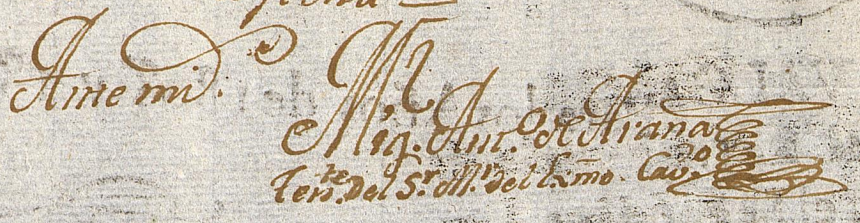 Ante mi.
Mig.l Ant.o de Arana
Ten.te del S.r M.r del Exmo. Cav.do